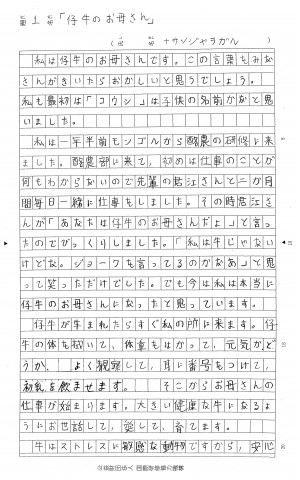 題1「仔牛のお母さん」
ナサンジャラガル
私は仔牛のお母さんです。この言葉をみな
さんがきいたらおかしいと思うでしょう。
私も最初は「コウシ」は子供の名前かなと思
いました。
私は一年半前モンゴルから酪農の研修に来
ました。酪農部に来て、初めは仕事のことが
何もわからないので先輩の君江さんと二か月
間毎日一緒に仕事をしました。その時君江さ
んが「あなたは仔牛のお母さんだよ」と言っ
たのでびっくりしました。「私は牛じゃない
けどな。ジョークを言ってるのかなあ」と思
って笑っただけでした。でも今は私は本当に
仔牛のお母さんになったと思っています。
仔牛が生まれたらすぐ私の所に来ます。仔
牛の体を拭いて、体重もはかって、元気かど
うか、よく観察して、耳に番号をつけて、
初乳を飲ませます。そこからお母さんの
仕事が始まります。大きい健康な牛になるよ
うにお世話して、愛して、育てます。
牛はストレスに敏感な動物ですから、安心